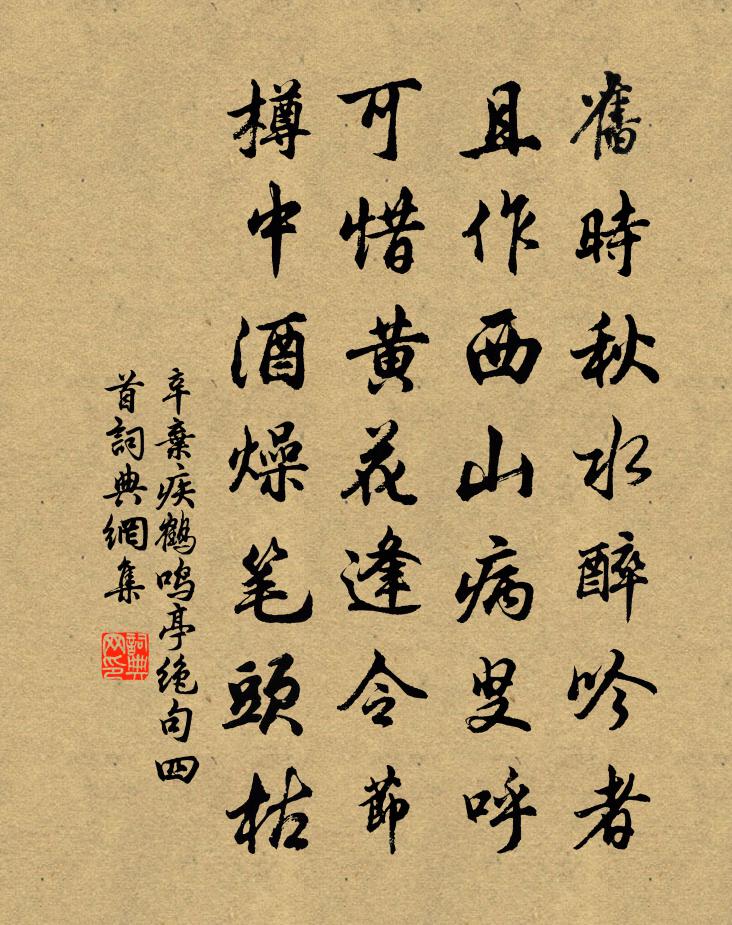 舊時秋水醉吟者
且作西山病叟呼
可惜黄花逢令節
樽中酒燥笔頭枯
辛棄疾鶴鳴亭绝句四
首詞典網集
詞典
网印